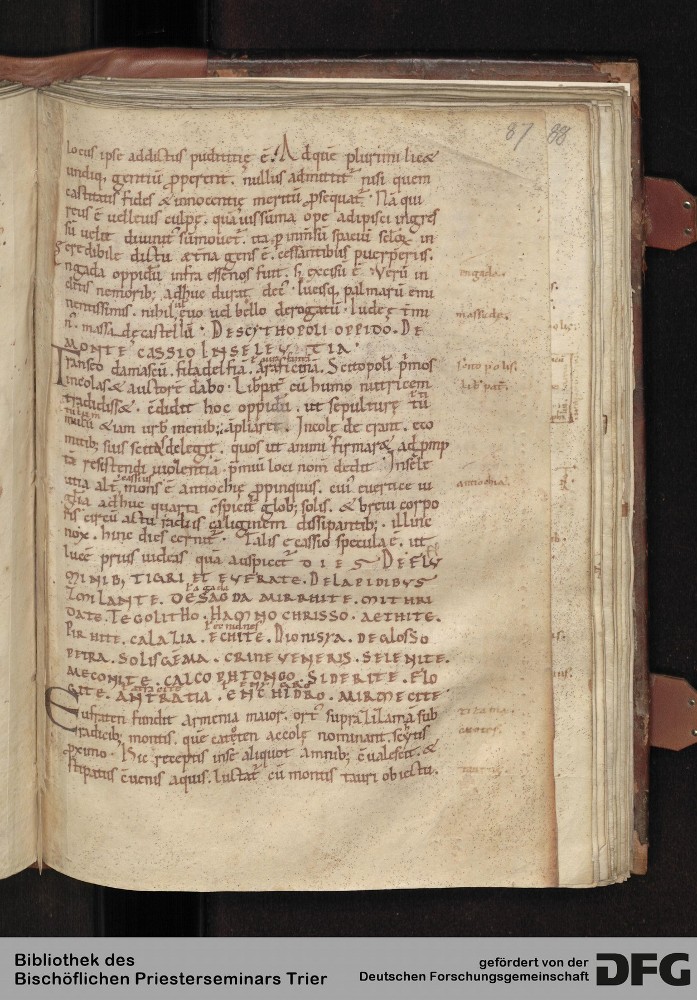 87 88
locus ipse addictus pudicitię ē. Ad quē plurimi licę&
undiq, gentiū pperent. nullus admittit nisi quem
castitatis fides & innocentię meritū psequat. Nā qui
reus ē vel leuis culpę. quāuis summa ope adipisci ingres
sū uelit diuinit summouet. ita p inmsū spaciū sclor in
credibile dictu ętna gens ē. cessantibus puerperiis.
Engada oppidū infra essenos fuit. s; excisū ē. Verū in
clitis nemorib; adhuc durat dec. lucisq, palmarū emi
nentissimis. nihil uel ęuo uel bello derogatū. Iudeę tmi
n. massada castellū. DESCYTHOPOLI OPPIDO. DE
MONTE CASSIO INSELEUTIA.
Transeo damascū. filadelfiā. rafianā. Scitopoli pmos
incolas & auctorē dabo. Liber cū humo nutricem
tradidiss&. cdidit hoc oppidū. ut sepulturę titu
lum & iam urb menib; ápliaret. Incolę deerant. eco
mitib; suis scitas delegit. quos ut animi firmar& ad pmp
tā resistendi uiolentiā. pmiū loci nom dedit. In sele
utia alt cassius mons ē antiochię ppinquus. cui uertice ui
gilia adhuc quarta cspicit glob; solis. & breui corpo
ris circū actu radiis caliginem dissipantib;. illinc
nox. hinc dies cernit. Talis e cassio specula ē. ut
lucē prius uideas quā auspicet DIES. DE FLU
MINIB; TIGRI ET EUFRATE. DE LAPIDIBUS
ZMILANTE. DE SAGDA MIRRHITE. MITHRI
DATE. TEGOLITHO. HAMMOCHRISSO. AETHITE.
PIRHITE. CALAZIA. ECHITE. DIONISIA. DE GLOSSO
PETRA. SOLISGEMA. CRINE VENERIS. SELENITE.
MECONITE. CALCOPHTONGO. SIDERITE. FLO
GITE. ANTRATIA. ENCHIDRO. MIRMECITE
Eufraten fundit armenia maior. ort supra lilamā sub
radicib; montis. quē catoten accolę nominant. scytis
pximo. Hic receptis in se aliquot amnib; cualescit. &
stipatus cuenis aquis. luctat cū montis tauri obiectu.
engada.
massada.
scitopolis.
lib pat.
antiochia.
catotes.
taurus.
Bibliothek des
Bischöflichen Priesterseminars Trier
gefördert von der
Deutschen Forschungsgemeinschaft
DFG